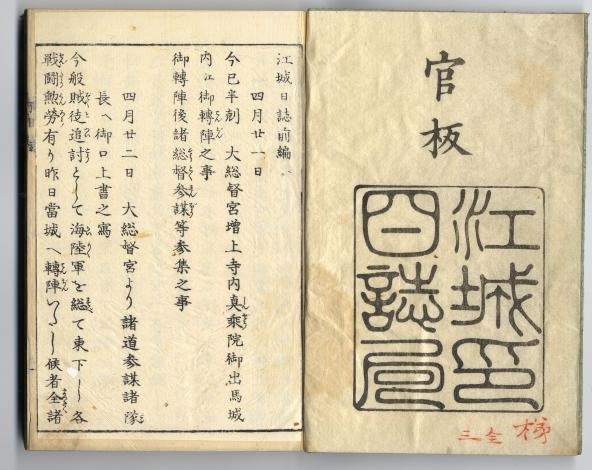 官板
江城印
日誌局
江城日誌前編
四月廿一日
今巳半刻 大総督宮増上寺内真乗院御出馬城
内江御轉陣之事
御轉陣後諸総督参謀等参集之事
四月廿二日 大総督宮より諸道参謀諸隊
長へ御口上書之寫
今般賊徒追討として海陸軍を総て東下し各
戦闘勲勞有り昨日當城へ轉陣いたし候者全諸